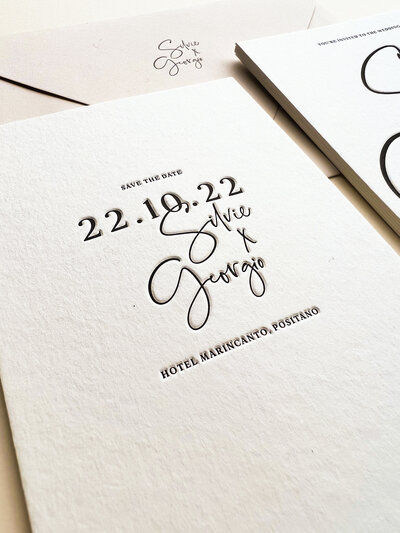 Silvie
x
Georgio
YOU'RE INVITED TO THE WEDDING
SAVE THE DATE
22.10.22
Silvie
x
Georgio
HOTEL MARINCANTO, POSITANO